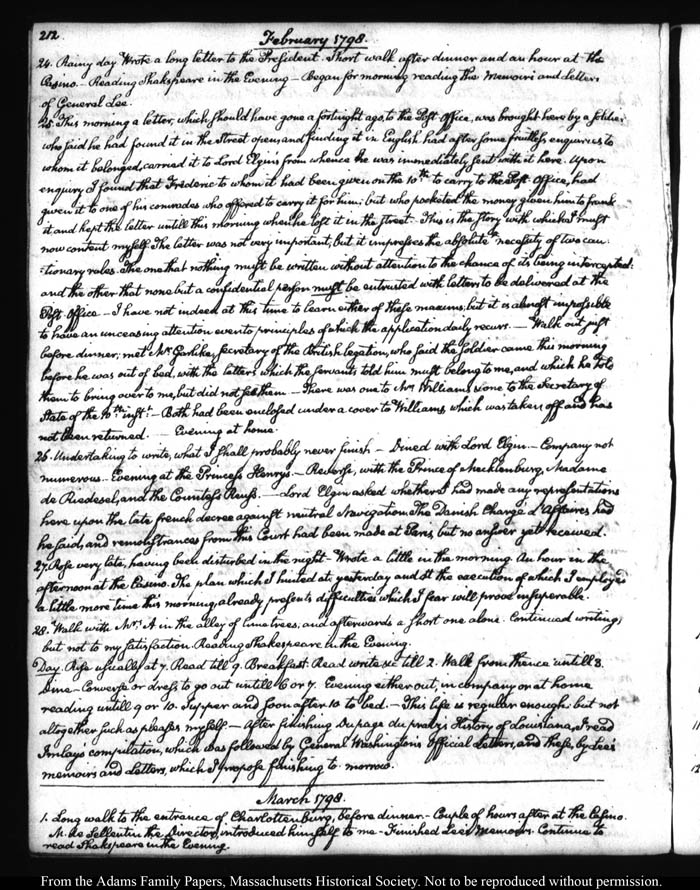 212.
February 1798.
24. Rainy day. Wrote a long letter to the President. Short walk after dinner and an hour at the
Casino. Reading Shakspeare in the Evening — Began for morning reading the Memoirs and letters
of General Lee.
25. This morning a letter, which should have gone a fortnight ago, to the Post Office, was brought here by a soldier
who said he had found it in the Street open, and finding it in English had after some fruitless enquiries to
whom it belonged, carried it to Lord Elgins from whence he was immediately sent with it here. Upon
enquiry I found that Frederic to whom it had been given on the 10th to carry to the Post Office, had
given it to one of his comrades who offered to carry it for him; but who pocketed the money given him to frank
it and kept the letter untill this morning when he left it in the street. This is the story with which I must
now content myself. The letter was not very important, but it impresses the absolute necessity of two cau-
-tionary rules. The one that nothing must be written without attention to the chance of its being intercepted:
and the other that none but a confidential person must be entrusted with letters to be delivered at the
Post Office — I have not indeed at this time to learn either of these maxims, but it is almost impossible
to have an unceasing attention even to principles of which the application daily recurs. — Walk out just
before dinner; met Mr Garlike, Secretary of the British legation, who said the soldier came this morning
before he was out of bed, with the letters which the servants told him must belong to me, and which he told
them to bring over to me, but did not see them — There was one to Mrs Williams & one to the Secretary of
State of the 10th inst. — Both had been enclosed under a cover to Williams, which was taken off and has
not been returned. — Evening at home.
26. Undertaking to write, what I shall probably never finish — Dined with Lord Elgin — Company not
numerous. Evening at the Princess Henry's — Reversse, with the Prince of Mecklenburg, Madame
de Riedesel, and the Countess Reuss. — Lord Elgin asked whether I had made any representations
here upon the late french decree against neutral Navigation. The Danish Chargé d'Affaires had
he said, and remonstrances from this Court had been made at Paris, but no answer yet received.
27. Rose very late, having been disturbed in the night — Wrote a little in the morning. An hour in the
afternoon at the Casino. The plan which I hinted at yesterday and at the execution of which I employed
a little more time this morning, already presents difficulties which I fear will prove insuperable.
28. Walk with Mrs A in the alley of lime trees, and afterwards a short one alone. Continued writing,
but not to my satisfaction. Reading Shakespeare in the Evening.
Day. Rise usually at 7. Read till 9. Breakfast. Read write &c till 2. Walk from thence untill 3.
Dine — Converse or dress to go out untill 6 or 7. Evening either out, in company or at home
reading until 9 or 10. Supper and soon after 10 to bed. — This life is regular enough but not
altogether such as pleases myself — After finishing Du page du pratz's History of Louisiana, I read
Imlays compilation, which was followed by General Washingtons Official Letters, and these, by Lee's
memoirs and letters, which I propose finishing to-morrow.
March 1798.
1. Long walk to the entrance of Charlottenburg, before dinner. — Couple of hours after at the Casino.
M. de Sellentin the Director, introduced himself to me — Finished Lee's Memoirs. Continue to
read Shakspeare in the Evening.
From the Adams Family Papers, Massachusetts Historical Society. Not to be reproduced without permission.